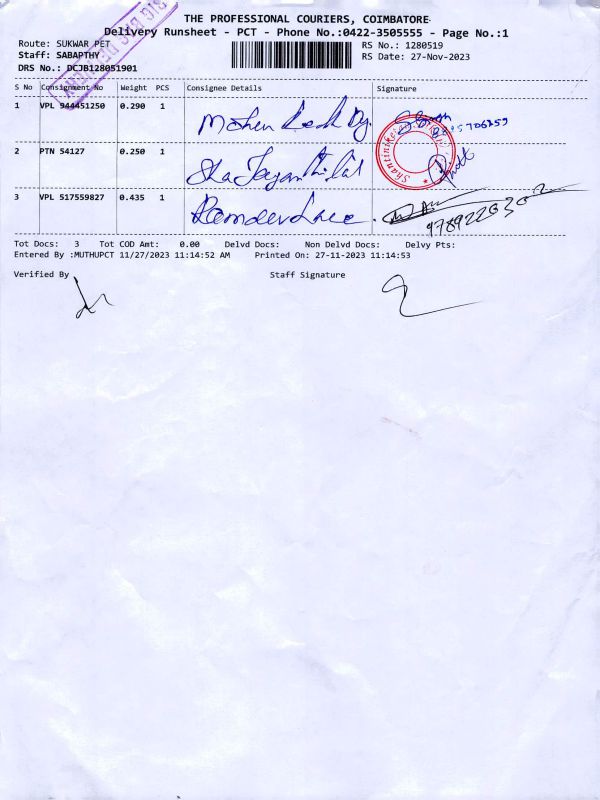 THE PROFESSIONAL COURIERS, COIMBATORE
Delivery Runsheet - PCT - Phone No.:0422-3505555 - Page No.:1
Route: SUKWAR PET
RS No.: 1280519
Staff: SABAPTHY
RS Date: 27-Nov-2023
DRS No.: DCJB128051901
S No Consignment No Weight PCS Consignee Details Signature
1 VPL 944451250 0.290 1 Mohen
2 PTN 54127 0.250 1
3 VPL 517559827 0.435 1 Ramdev
Tot Docs: 3 Tot COD Amt: 0.00 Delvd Docs: Non Delvd Docs: Delvy Pts:
Entered By :MUTHUPCT 11/27/2023 11:14:52 AM Printed On: 27-11-2023 11:14:53
Verified By Staff Signature